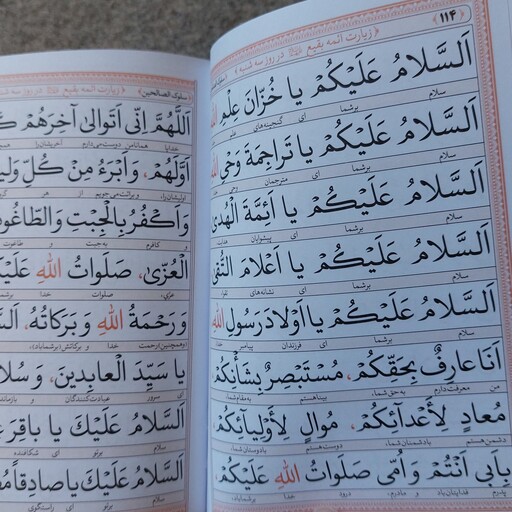 ۱۱۴
﴿ زیارت ائمه بقیع در روز سه شنبه ﴾
اَلسَّلامُ عَلَیْکُمْ یا خُزّانَ عِلْمِ اللهِ
سلام برشما ای گنجینه‌های علم
اَلسَّلامُ عَلَیْکُمْ یا تَراجِمَةَ وَحْیِ اللهِ
سلام برشما ای مترجمان وحی
اَلسَّلامُ عَلَیْکُمْ یا اَئِمَّةَ الْهُدیٰ
سلام برشما ای پیشوایان هدایت
اَلسَّلامُ عَلَیْکُمْ یا اَعْلامَ التُّقیٰ
سلام برشما ای نشانه‌های
اَلسَّلامُ عَلَیْکُمْ یا اَوْلادَ رَسُولِ اللهِ
سلام برشما ای فرزندان پیامبر خدا
اَنَا عارِفٌ بِحَقِّکُمْ، مُسْتَبْصِرٌ بِشَأْنِکُمْ
من معرفت دارم به حق شما، بینا هستم به مقام شما،
مُعادٍ لِأَعْدآئِکُمْ، مُوالٍ لِأَوْلِیآئِکُمْ،
دشمن هستم با دشمنان شما، دوست هستم با دوستان شما،
بِاَبی اَنْتُمْ وَ اُمّی صَلَواتُ اللهِ عَلَیْکُمْ،
پدرم فدایتان باد و مادرم، درود خدا برشما باد،
﴿ زیارت ائمه بقیع در روز سه شنبه ﴾ ﴿ سلوک الصالحین ﴾
اَللّٰهُمَّ اِنّی اَتَوالیٰ آخِرَهُمْ
خدایا همانا من دوست می‌دارم آخرینشان را
اَوَّلَهُمْ، وَ اَبْرَءُ مِنْ کُلِّ
اولینشان را، و برائت می‌جویم از هر
وَ اَکْفُرُ بِالْجِبْتِ وَ الطّاغُوتِ
و کافرم به جبت و طاغوت
الْعُزّیٰ، صَلَواتُ اللهِ
عزّی، صلوات خدا
وَ رَحْمَةُ اللهِ وَ بَرَکاتُهُ،
(و همچنین) رحمت خدا و برکاتش (برشما باد)،
یا سَیِّدَ الْعابِدینَ، وَ
ای سرور عبادت کنندگان و
اَلسَّلامُ عَلَیْکَ یا باقِرَ
سلام برتو ای شکافنده
اَلسَّلامُ عَلَیْکَ یا صادِقاً
سلام برتو ای راستگوی